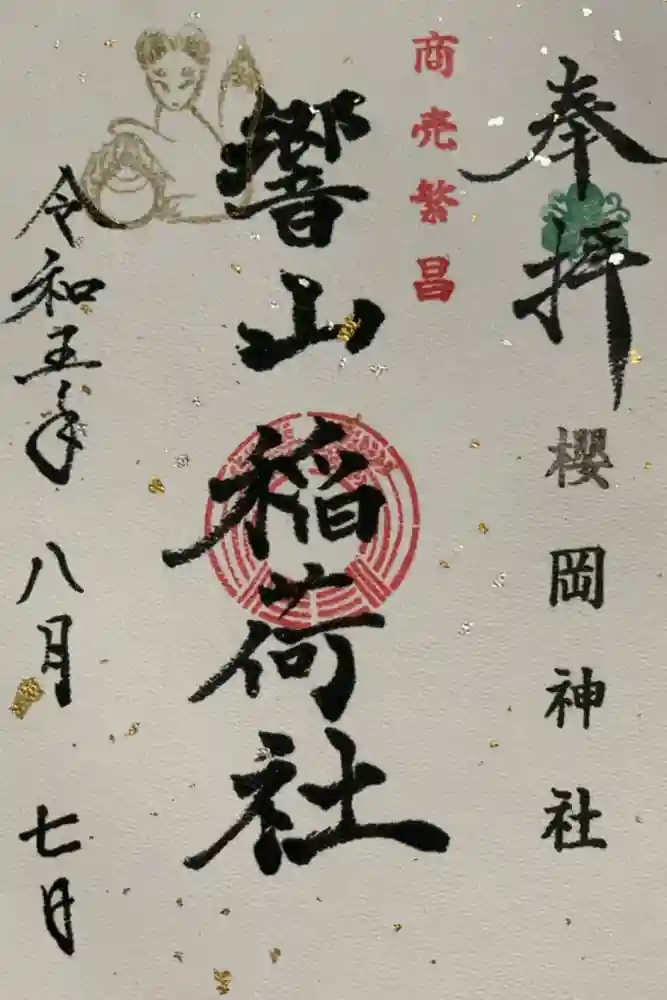 奉拝
櫻岡神社
商売繁昌
響山稲荷社
令和五年 八月 七日